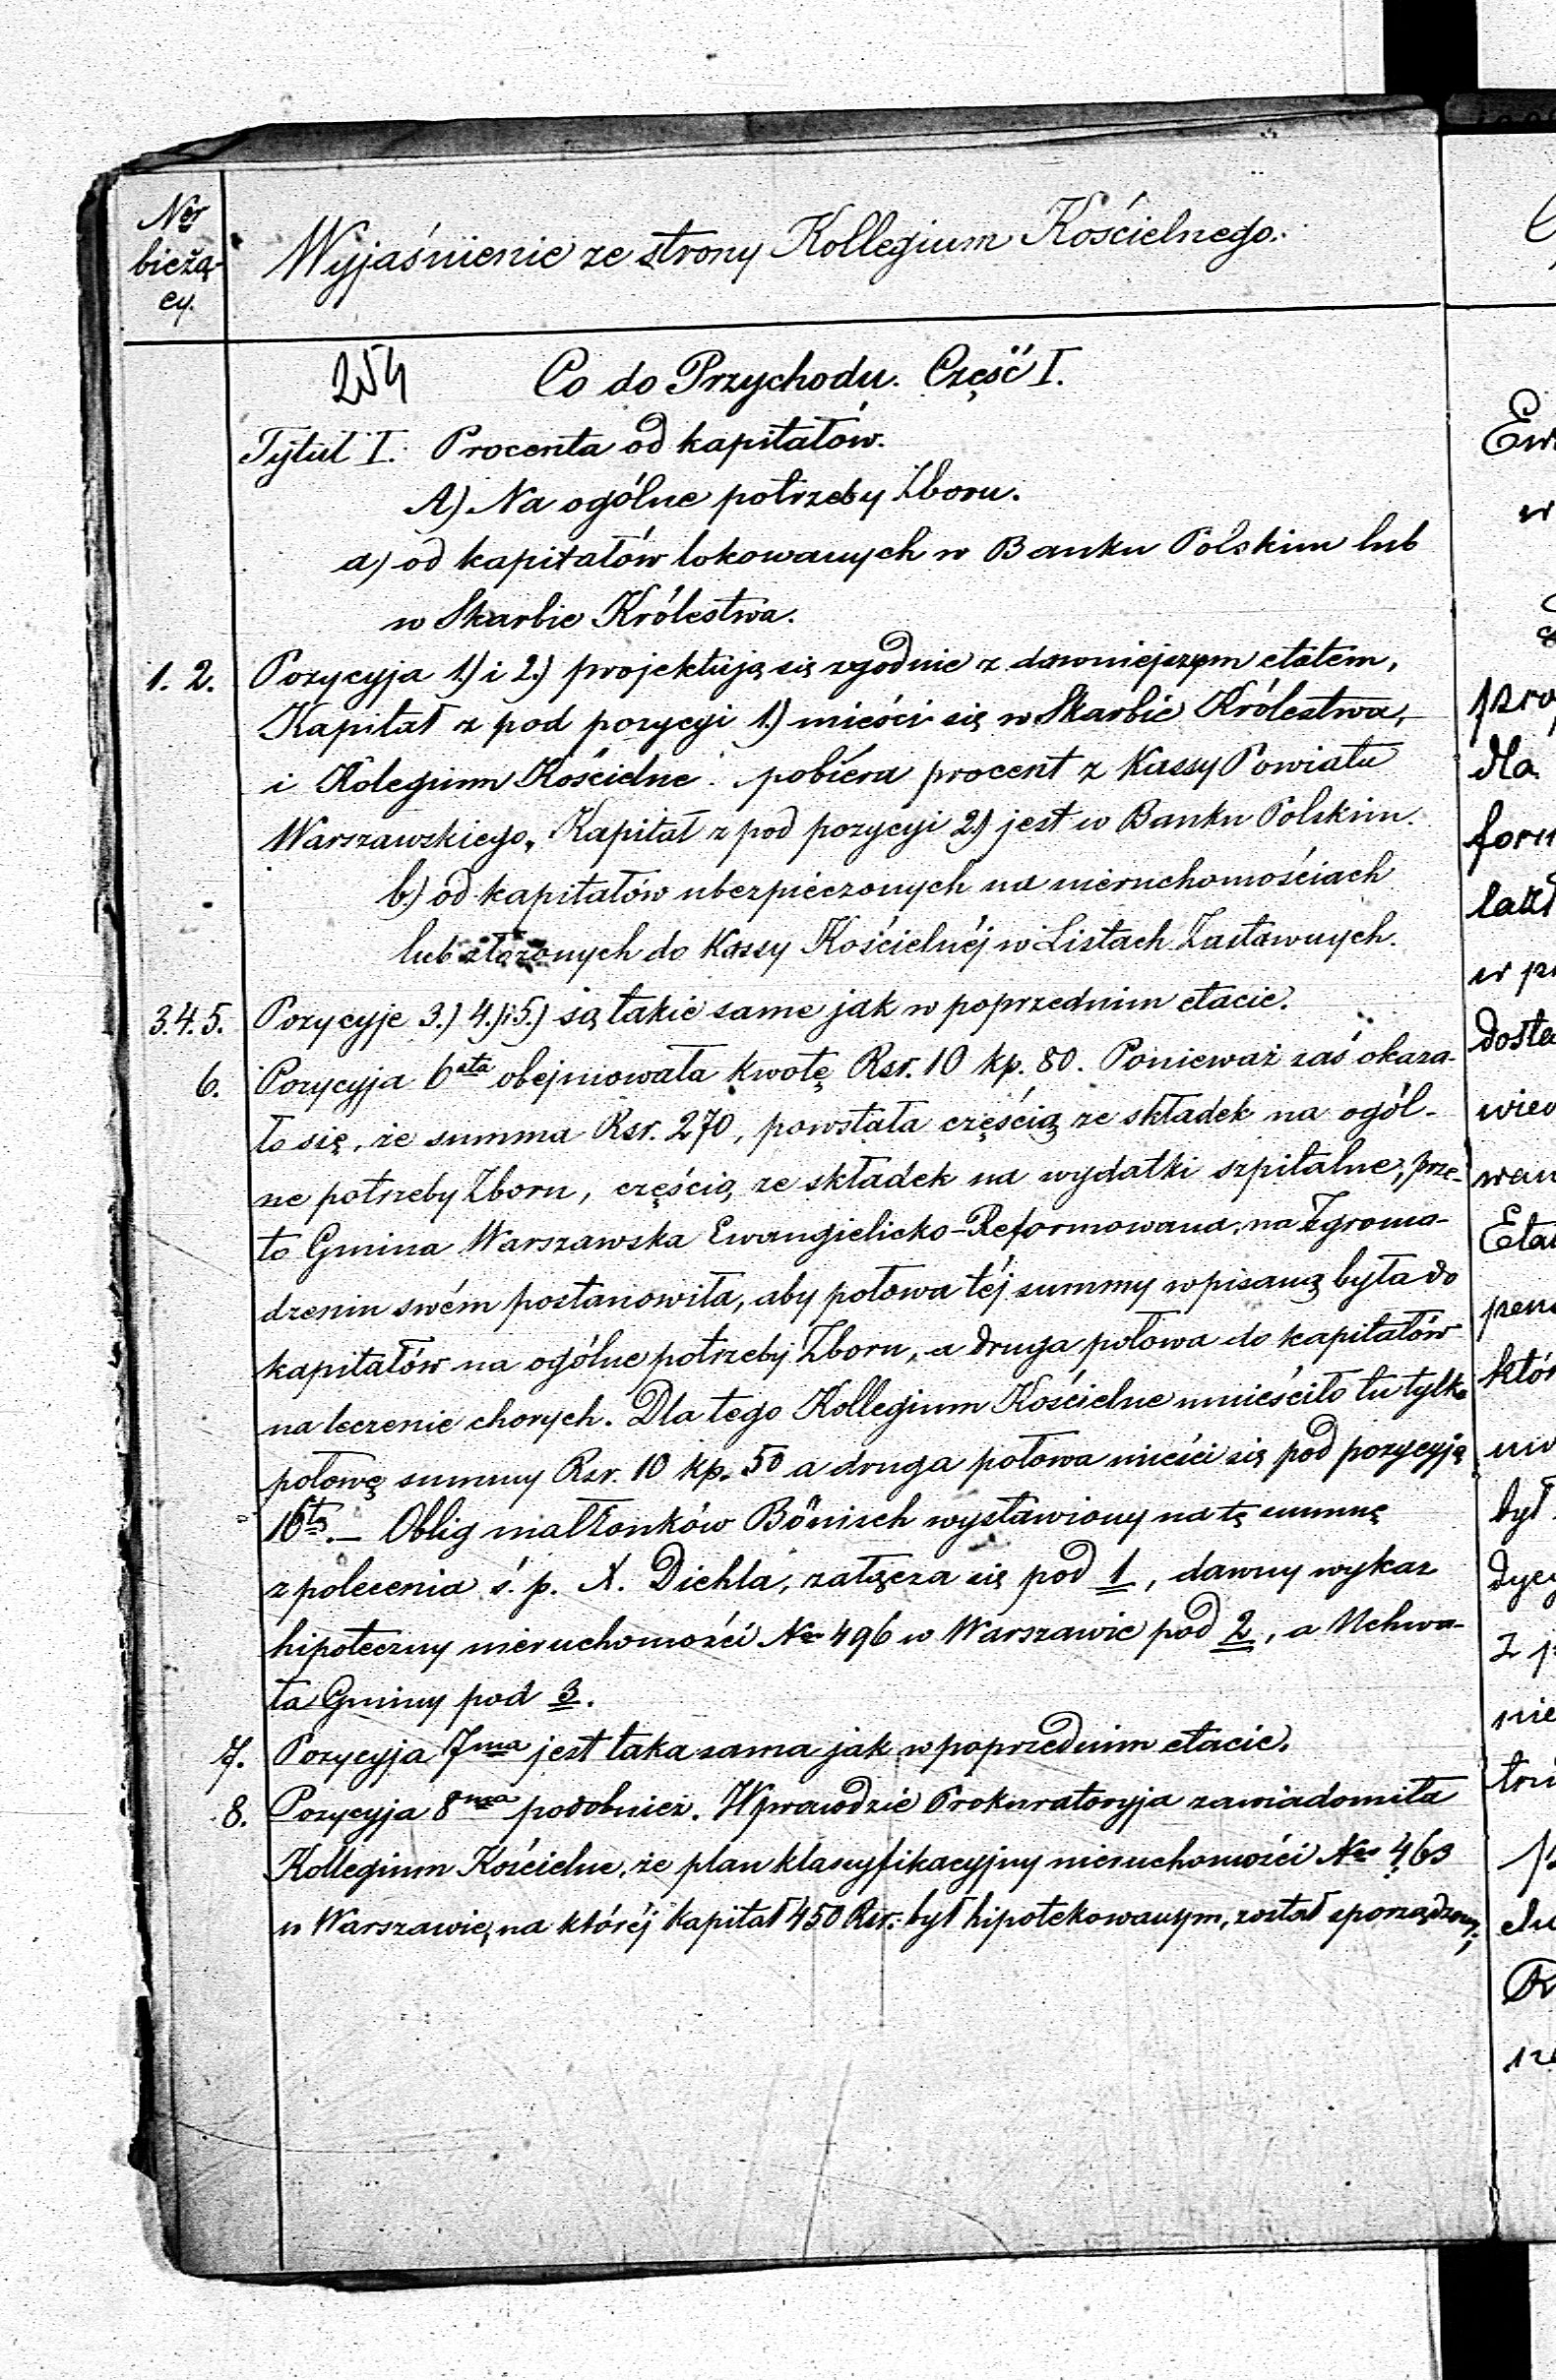 Nor
bieżą-
cy.
Wyjaśnienie ze strony Kollegium Kościelnego.
254
Co do Przychodu. Część I.
Tytuł I. Procenta od kapitałów.
A) Na ogólne potrzeby Zboru.
a) od kapitałów lokowanych w Banku Polskim lub
w Skarbie Królestwa.
1. 2. Pozycyja 1.) i 2.) projektują się zgodnie z dawniejszym etatem,
Kapitał z pod pozycyi 1.) mieści się w Skarbie Królestwa,
i Kolegium Kościelne pobiera procent z Kassy Powiatu
Warszawskiego, Kapitał z pod pozycyi 2.) jest w Banku Polskim.
b.) od kapitałów ubezpieczonych na nieruchomościach
lub złożonych do Kassy Kościelnéj w Listach Zastawnych.
3. 4. 5. Pozycyje 3.) 4.) i 5.) są takie same jak w poprzednim etacie.
6. Pozycyja 6sta obejmowała kwotę Rsr. 10 kp. 80. Ponieważ zaś okaza-
ło się, że summa Rsr. 270, powstała częścią ze składek na ogól-
ne potrzeby Zboru, częścią ze składek na wydatki szpitalne, prze-
to Gmina Warszawska Ewangielicko-Reformowana, na Zgroma-
dzeniu swém postanowiła, aby połowa téj summy wpisaną była do
kapitałów na ogólne potrzeby Zboru, a druga połowa do kapitałów
na leczenie chorych. Dla tego Kollegium Kościelne umieściło tu tylko
połowę summy Rsr. 10 kp. 50 a druga połowa mieści się pod pozycyją
16tą. – Oblig małżonków Bönisch wystawiony na tę summę
z polecenia ś. p. X. Diehla, załącza się pod 1, dawny wykaz
hipoteczny nieruchomości Nr 496 w Warszawie pod 2, a Uchwa-
ła Gminy pod 3.
7. Pozycyja 7ma jest taka sama jak w poprzednim etacie.
8. Pozycyja 8ma podobnież. Wprawdzie Prokuratoryja zawiadomiła
Kollegium Kościelne, że plan klassyfikacyjny nieruchomości Nr 463
w Warszawie, na któréj kapitał 450 Rsr. był hipotekowanym, został sporządzony;